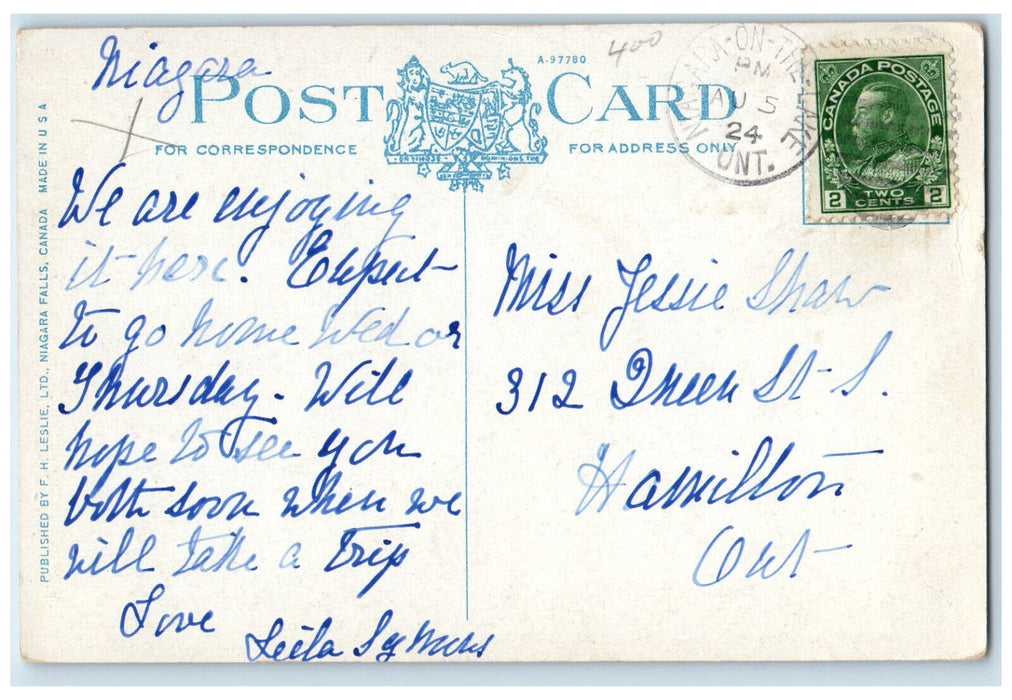 Niagara
POST CARD
A-97780
400
FOR CORRESPONDENCE
FOR ADDRESS ONLY
NIAGARA-ON-THE-LAKE
PM
AU 5
24
ONT.
CANADA POSTAGE
2 TWO CENTS 2
We are enjoying
it here. Expect
to go home Wed or
Thursday - Will
hope to see you
both soon when we
will take a Trip
Love
Leila
Miss Jessie Shaw
312 Queen St S.
Hamilton
Ont
PUBLISHED BY F. H. LESLIE, LTD., NIAGARA FALLS, CANADA MADE IN USA